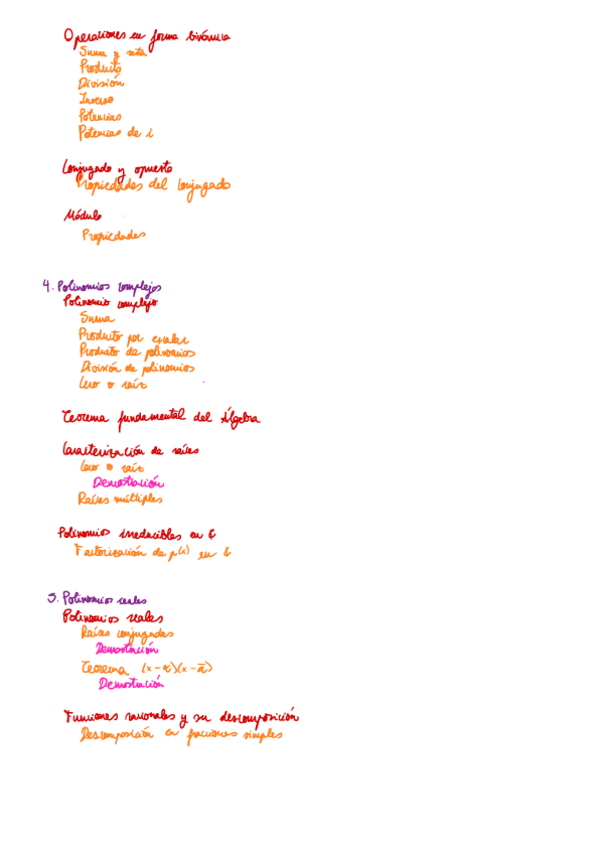 Operaciones en forma binómica
Suma y resta
Producto
División
Inverso
Potencias
Potencias de i
Conjugado y opuesto
Propiedades del conjugado
Módulo
Propiedades
4. Polinomios complejos
Polinomio complejo
Suma
Producto por escalar
Producto de polinomios
División de polinomios
Cero o raíz
Teorema fundamental del Álgebra
Caracterización de raíces
Cero o raíz
Demostración
Raíces múltiples
Polinomios irreducibles en ℂ
Factorización de p(x) en ℂ
5. Polinomios reales
Polinomios reales
Raíces conjugadas
Demostración
Teorema (x-α)(x-ᾱ)
Demostración
Funciones racionales y su descomposición
Descomposición en fracciones simples